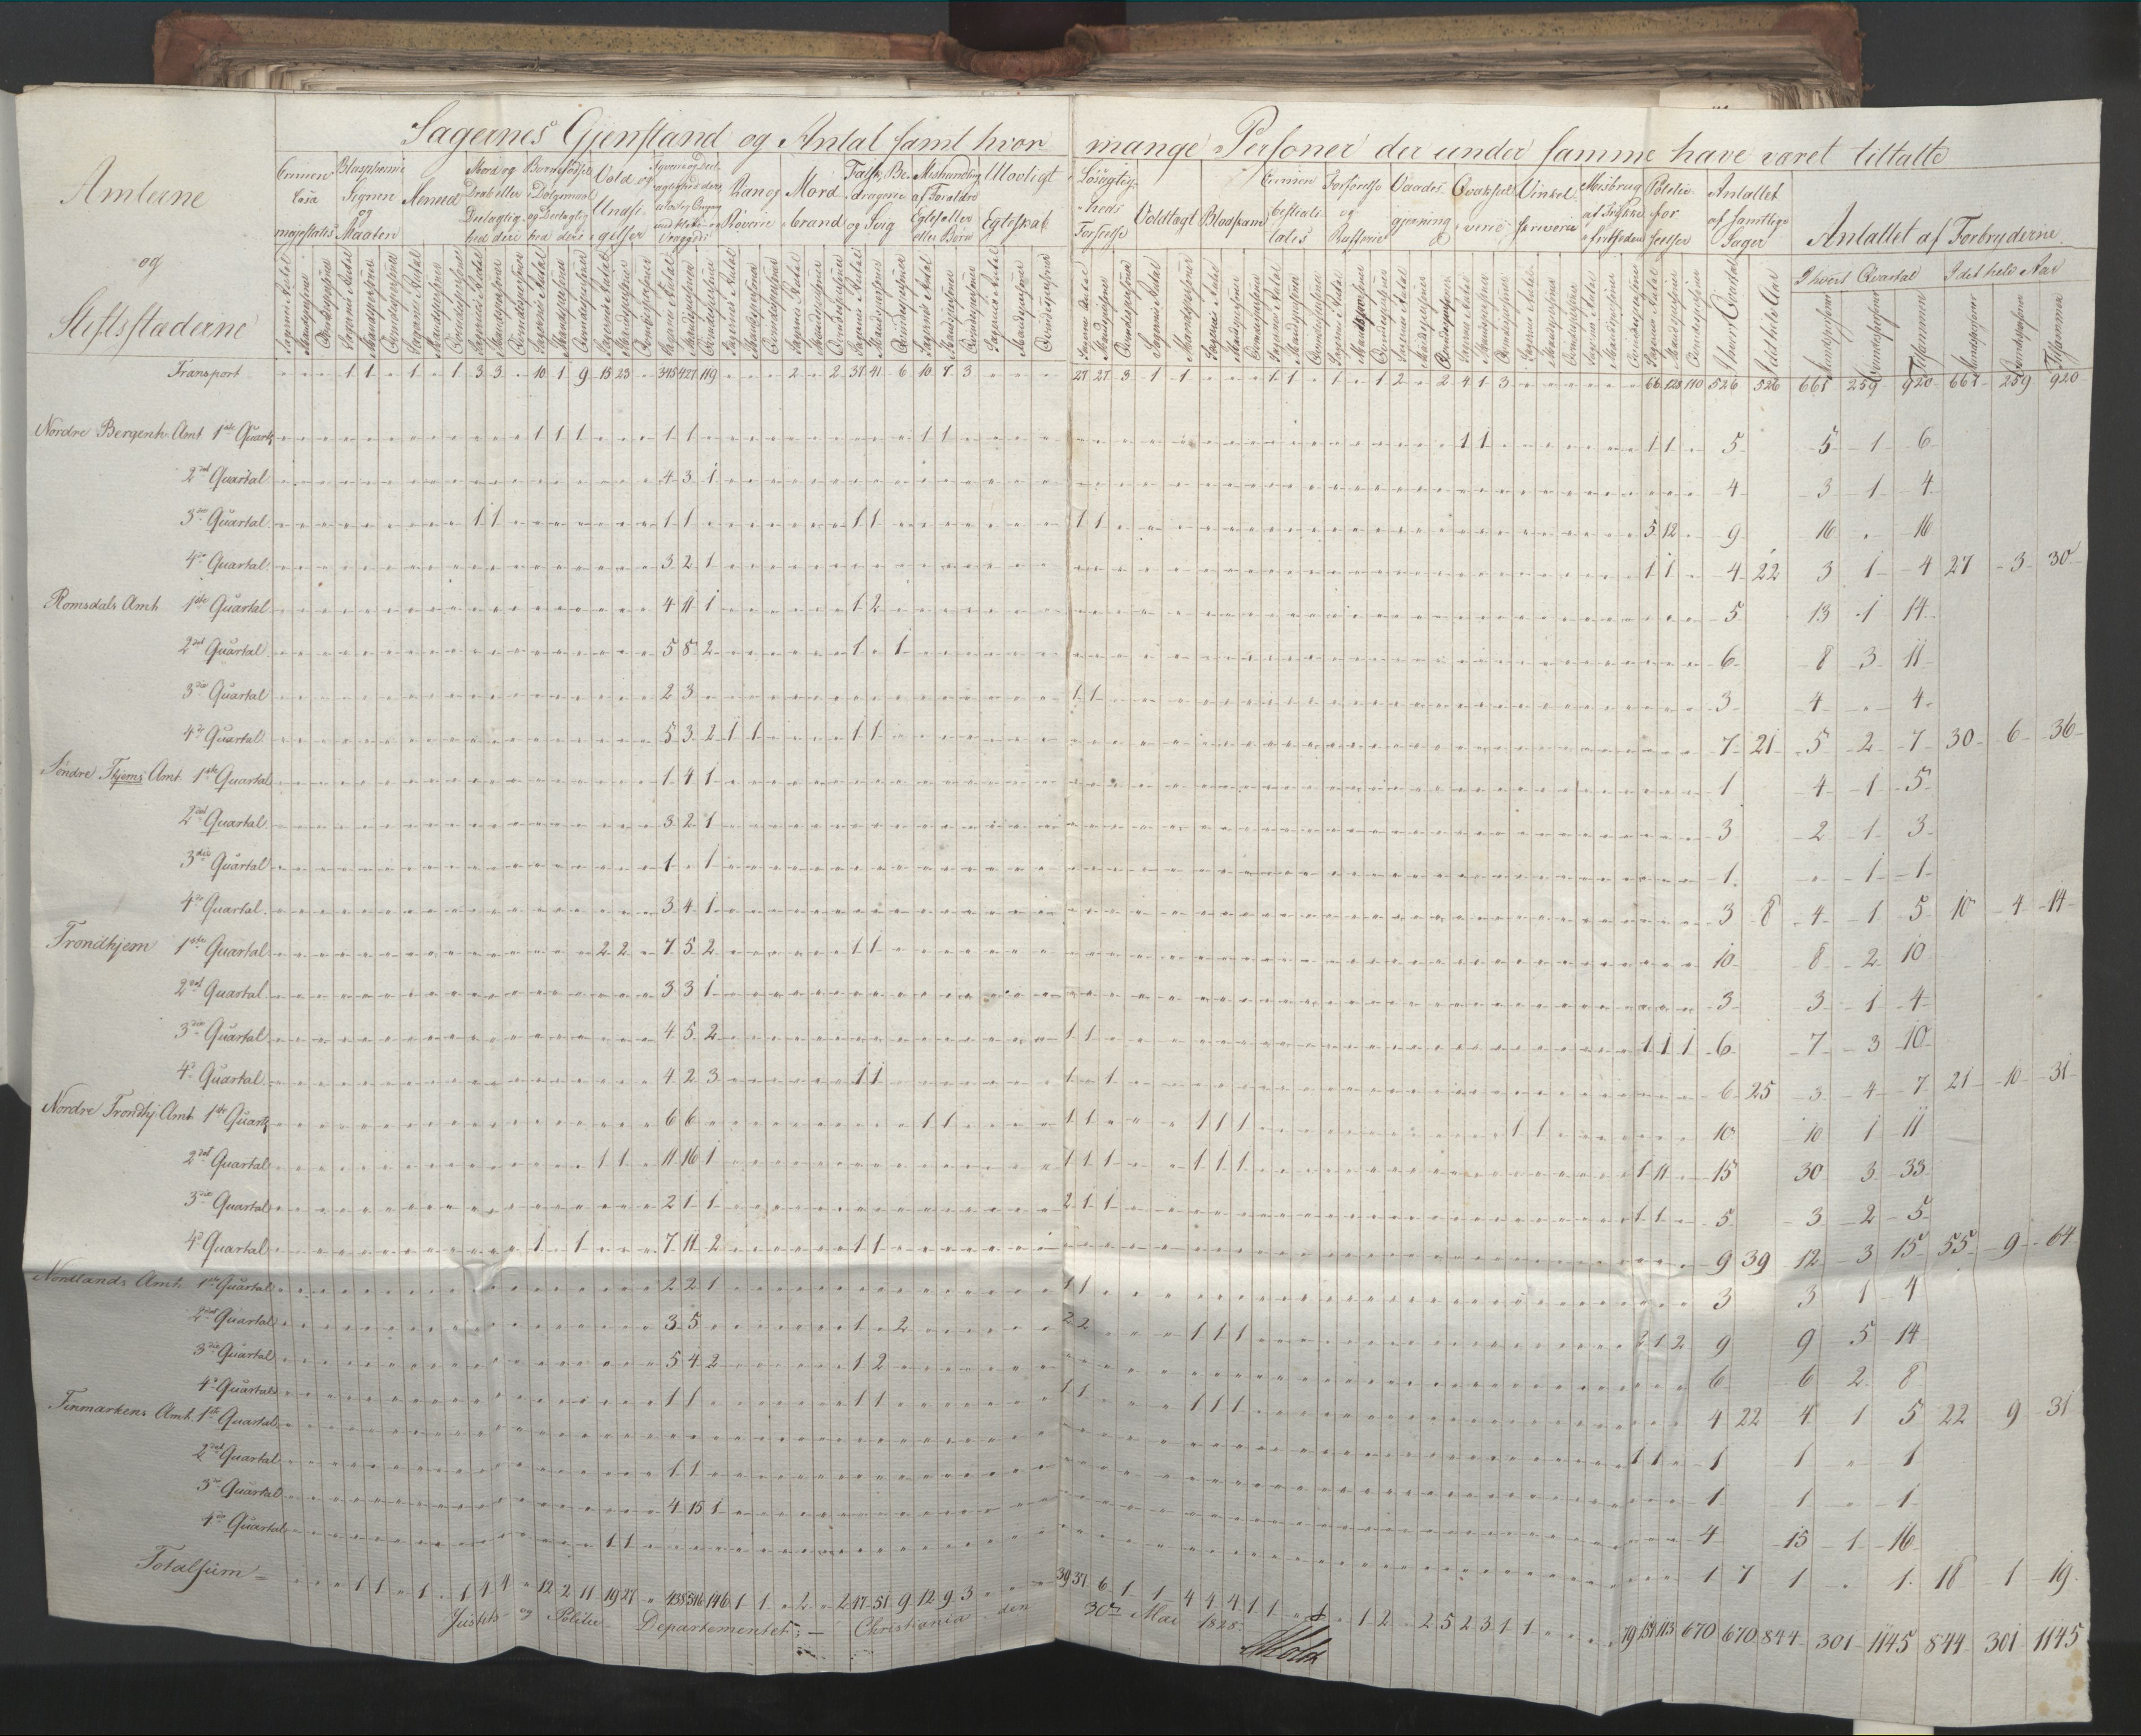 Sagernes Gjenstand og Antal samt hvor mange Personer der under samme have været tiltalte
Amterne
og
Stiftsstæderne
Crimen
læsa
majestatis
Blasphemie
Signen
og
Maanen
Meened
Mord og
Drab eller
Deelagtig-
hed deri
Vold og
Undsi-
gelser
Ran og
Røverie
Mord
brand
Falsk, Be-
dragerie
og Svig
Mishandling
af Forældre
Egtefæller
eller Børn
Ulovligt
Egteskab
Løsagtig-
heds
Forseelse
Voldtægt
Blodskam
Crimen
bestiali-
tatis
Forførelse
og
Rufferie
Vaades-
gjerning
Qvaksal-
verie
Vinkel-
skriverie
Misbrug
af Trykke-
friheden
Politie-
for-
seelser
Antallet
af samtlige
Sager
Antallet af Forbryderne
I hvert Qvartal
I det hele Aar
Sagernes Antal
Mandspersoner
Qvindespersoner
I hvert Qvartal
I det hele Aar
Mandspersoner
Qvindespersoner
Tilsammen
Mandspersoner
Qvindespersoner
Tilsammen
Transport 1 1 1 1 3 3 10 1 9 15 23 345 427 119 2 2 37 41 6 10 7 3 27 27 3 1 1 1 1 1 1 2 2 4 1 3 66 128 110 526 526 661 259 920 661 259 920
Nordre Bergenh. Amt 1ste Quart. 1 1 1 1 1 1 1 1 1 1 1 5 5 1 6
2det Quartal 4 3 1 4 3 1 4
3die Quartal 1 1 1 1 1 1 1 1 5 12 9 16 16
4de Quartal 3 2 1 1 1 4 22 3 1 4 27 3 30
Romsdals Amt 1ste Quartal 4 11 1 1 2 5 13 1 14
2det Quartal 5 8 2 1 1 6 8 3 11
3die Quartal 2 3 1 1 3 4 4
4de Quartal 5 3 2 1 1 1 1 7 21 5 2 7 30 6 36
Söndre Thjems Amt 1ste Quartal 1 4 1 1 4 1 5
2det Quartal 3 2 1 3 2 1 3
3die Quartal 1 1 1 1 1
4de Quartal 3 4 1 3 8 4 1 5 10 4 14
Trondhjem 1ste Quartal 2 2 7 5 2 1 1 10 8 2 10
2det Quartal 3 3 1 3 3 1 4
3die Quartal 4 5 2 1 1 1 1 1 6 7 3 10
4de Quartal 4 2 3 1 1 1 1 6 25 3 4 7 21 10 31
Nordre Trondhj. Amt 1ste Quart. 6 6 1 1 1 1 1 1 1 1 1 10 10 1 11
2det Quartal 1 1 11 16 1 1 1 1 1 1 1 1 11 15 30 3 33
3die Quartal 2 1 1 2 1 1 1 1 5 3 2 5
4de Quartal 1 1 7 11 2 1 1 9 39 12 3 15 55 9 64
Nordlands Amt 1ste Quartal 2 2 1 1 1 3 3 1 4
2det Quartal 3 5 1 2 2 2 1 1 1 2 1 2 9 9 5 14
3die Quartal 5 4 2 1 2 6 6 2 8
4de Quartal 1 1 1 1 1 1 1 1 1 4 22 4 1 5 22 9 31
Finmarkens Amt 1ste Quartal 1 1 1 1 1
2det Quartal 1 1 1 1 1
3die Quartal 4 15 1 4 15 1 16
4de Quartal 1 1 1 7 1 1 18 1 19
Totalsum 1 1 1 1 4 4 12 2 11 19 27 438 516 146 1 1 2 2 47 51 9 12 9 3 39 37 6 1 1 4 4 4 1 1 1 1 2 2 5 2 3 1 1 79 154 113 670 670 844 301 1145 844 301 1145
Justits- og Politie-Departementet; — Christiania den 30te Mai 1828.